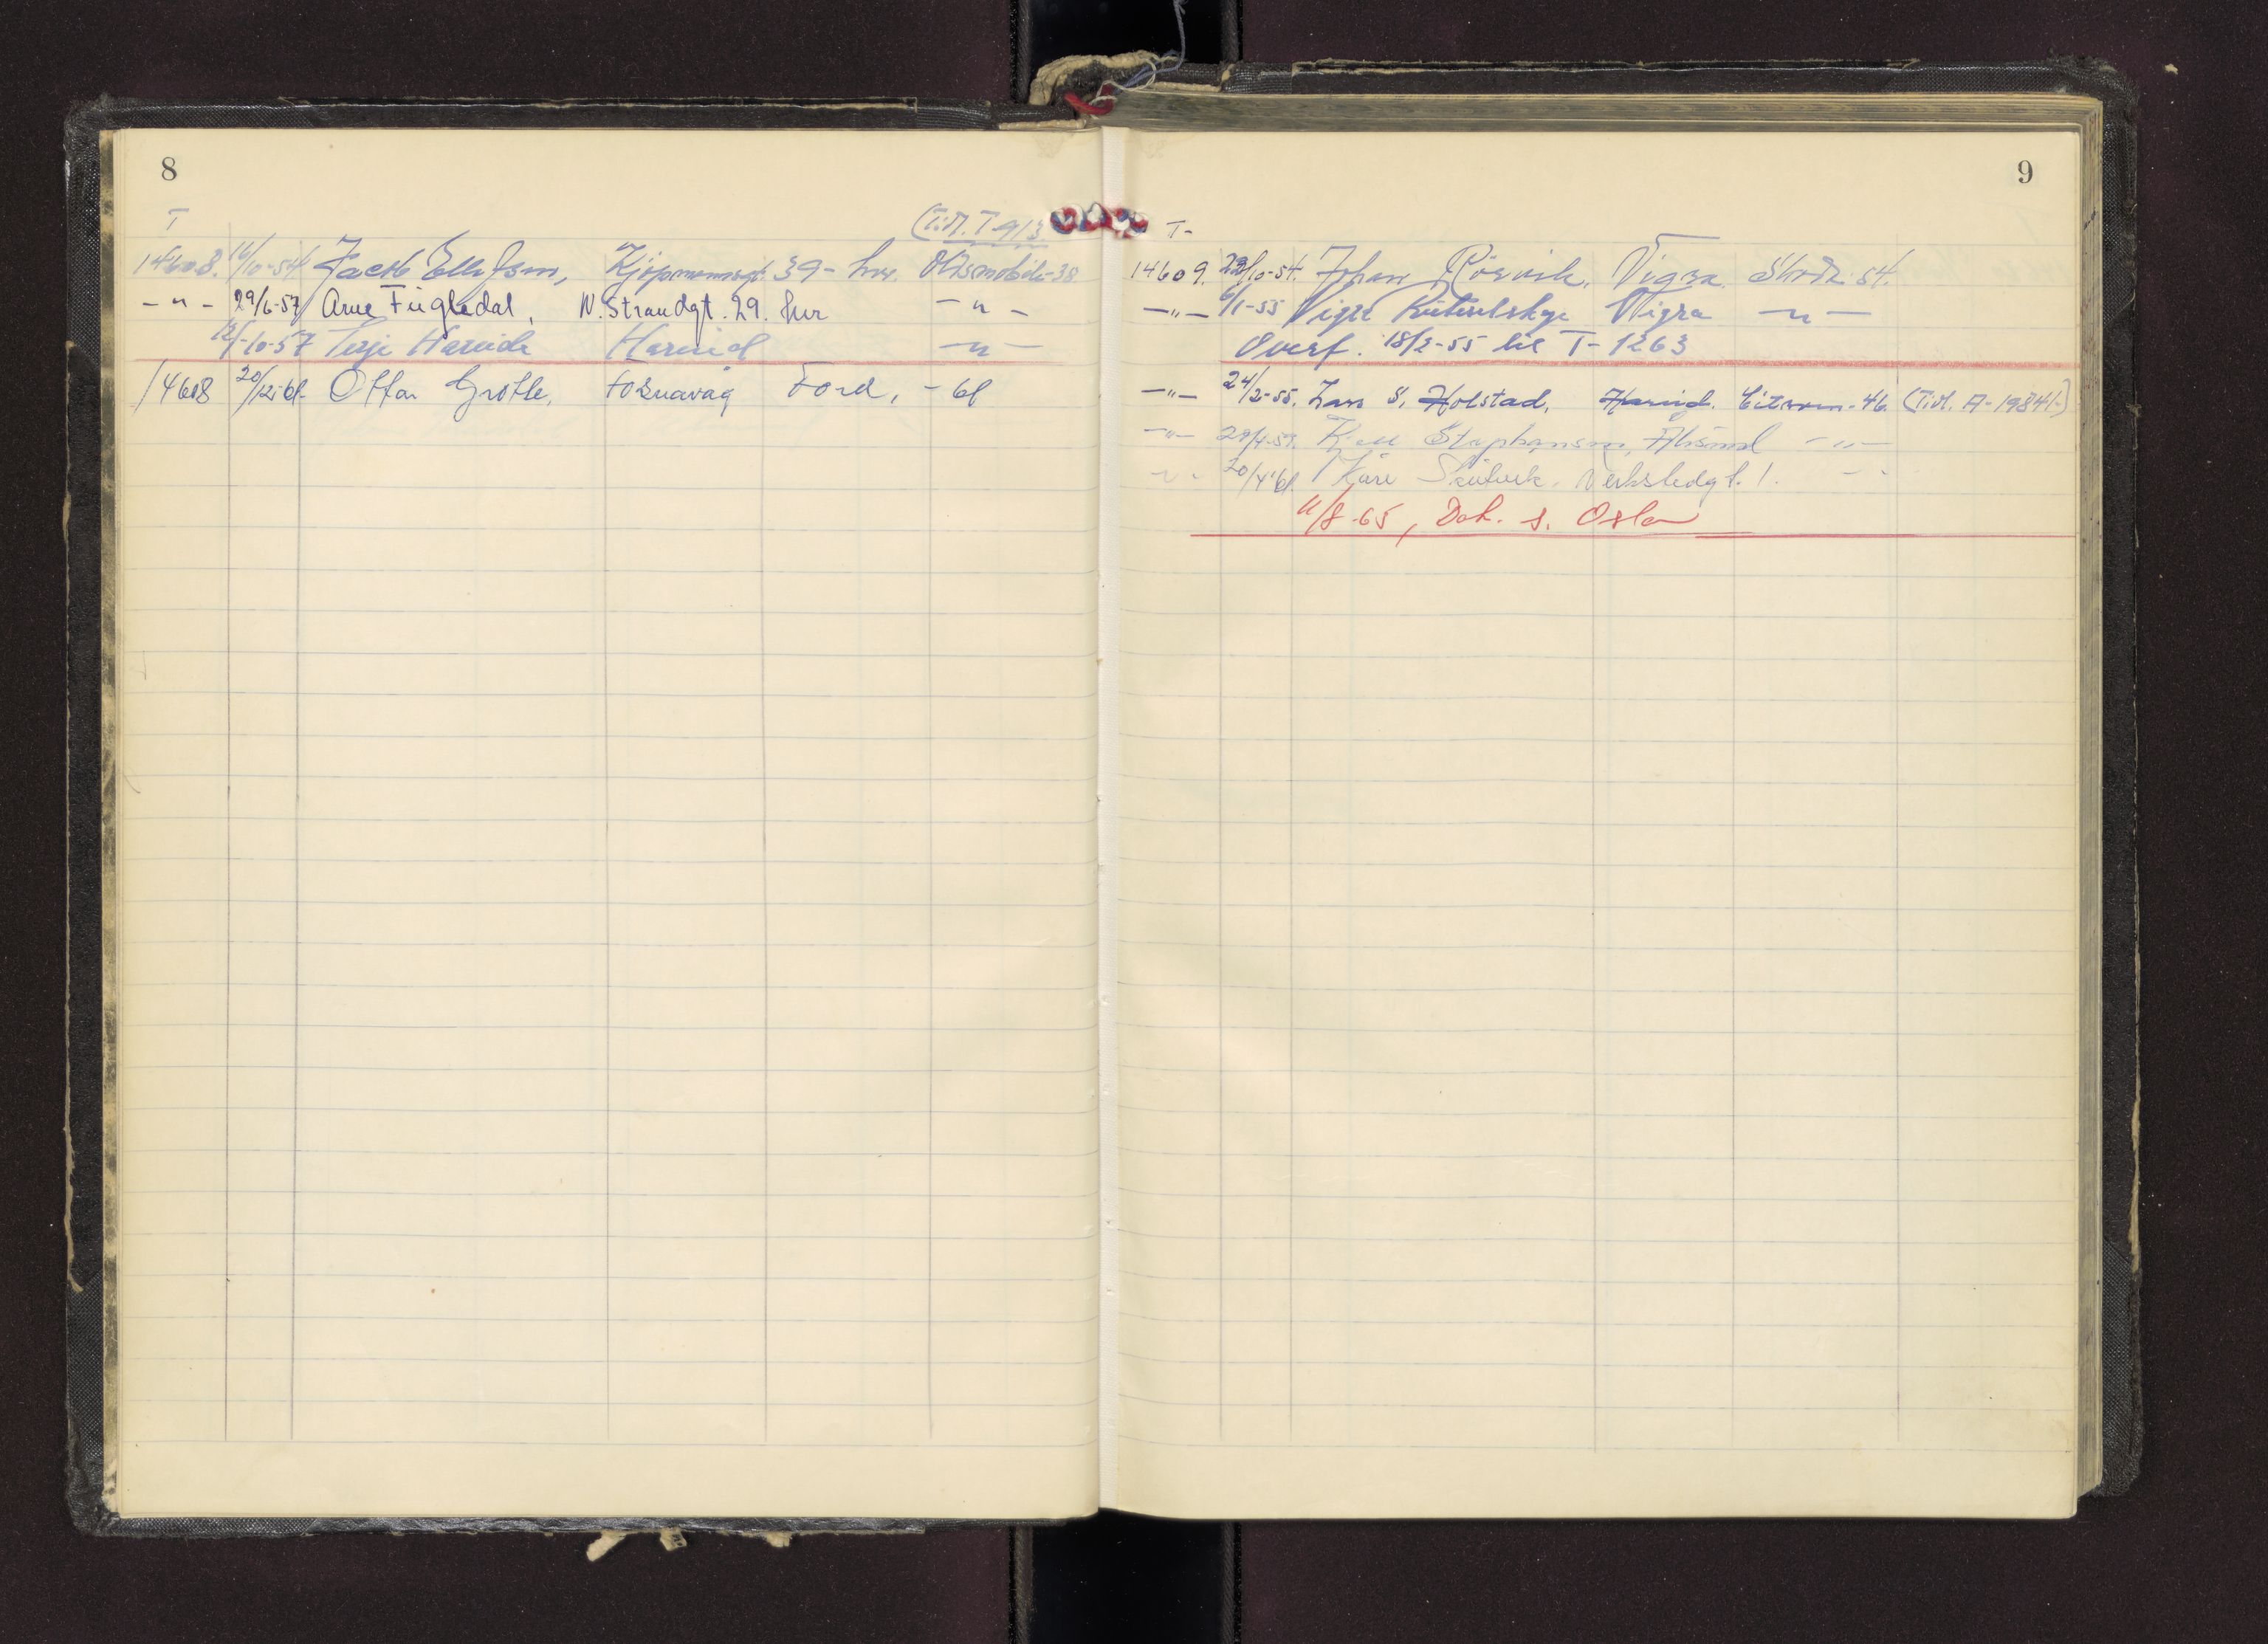 8
T
(Tidl. T-913
14608. 16/10-54 Jacob Ellefsen, Kjøpmannsgt. 39 - her. Oldsmobile-38
- " - 29/6-57 Arne Fugledal, N. Strandgt. 29. her - " -
12/-10-57 Terje Hareide Hareid - " -
14608 20/12-61. Ottar Grotle, Fosnavåg Ford, - 61
9
T-
14609. 29/10-54. Johan Rörvik, Vigra. Skoda 54.
- " - 6/1-55 Vigra Vigra - " -
Overf. 18/2-55 til T- 1263
- " - 24/2-55. Lars S. Holstad, Hareid. Citroen-46. (Tidl. A-19841-)
- " - 29/7-59. Kjell Stephansen, Ålesund - " -
- " - 20/4-61. Kåre Verkstedgt. 1. - " -
11/8-65, Dek. s. Oslo